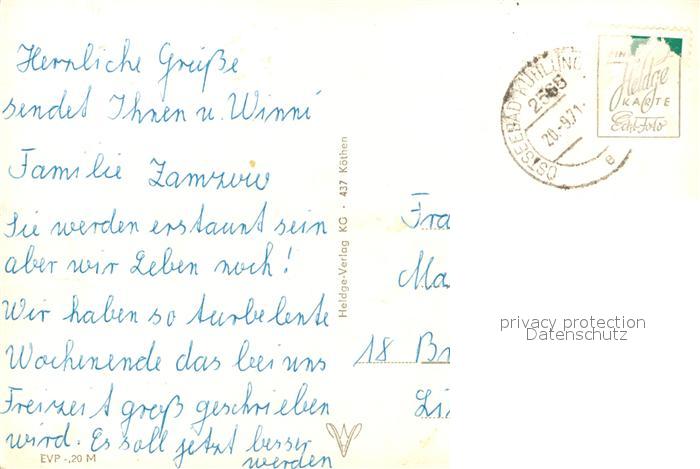 Herrliche Grüße
sendet Ihnen u. Winni
Familie Zamzow
Sie werden erstaunt sein
aber wir Leben noch!
Wir haben so turbelente
Wochenende das bei uns
Freizeit groß geschrieben
wird. Es soll jetzt besser
werden
EVP -,20 M
Heldge-Verlag KG · 437 Köthen
OSTSEEBAD KÜHLUNG
2565
20.-9.71.
e
Heldge
KARTE
Echt-Foto
Fra
Ma
18 Br
Li
privacy protection
Datenschutz